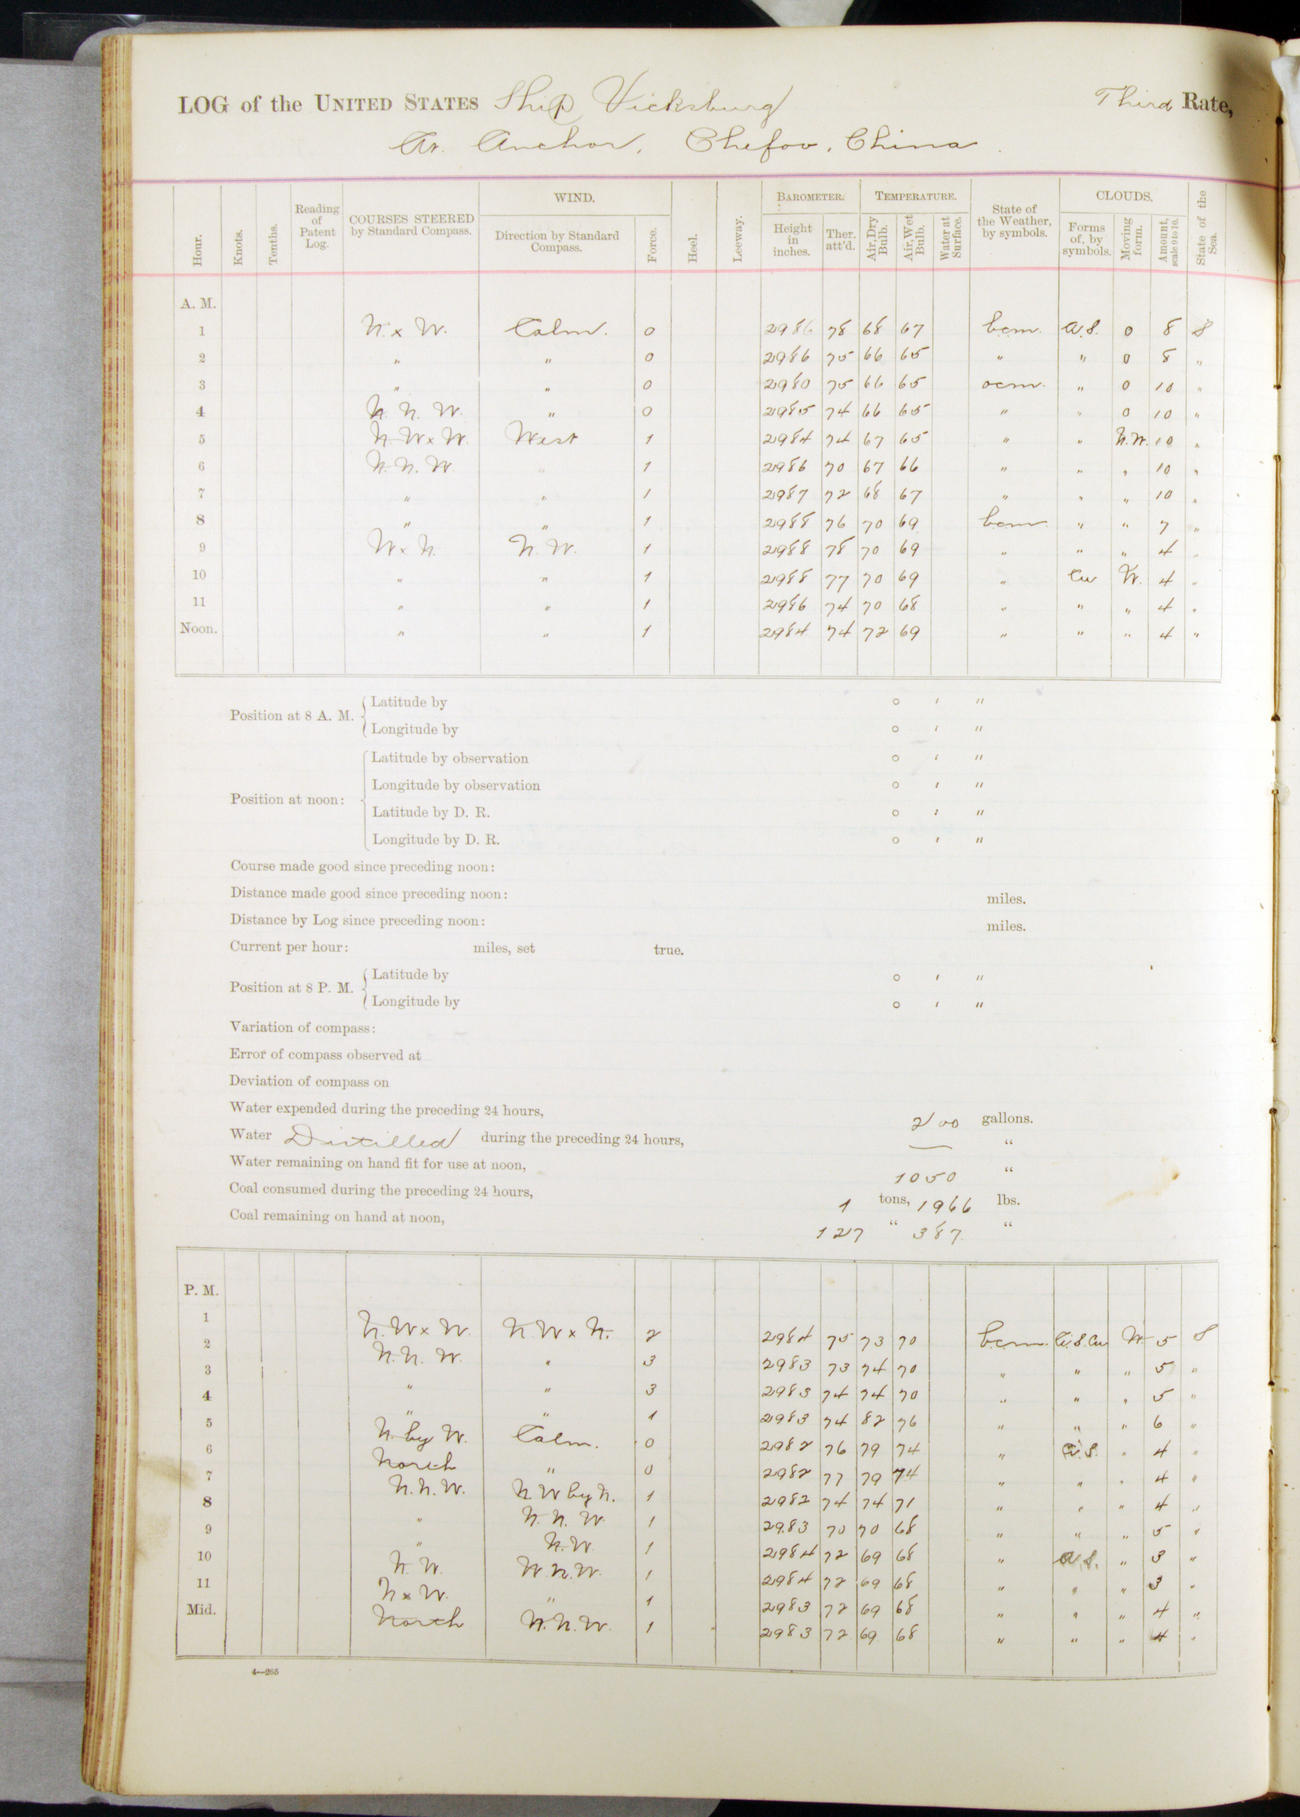 LOG of the UNITED STATES Ship Vicksburg Third Rate,
At Anchor, Chefoo, China.
Hour. Knots. Tenths. Reading of Patent Log. COURSES STEERED by Standard Compass. WIND. Direction by Standard Compass. Force. Heel. Leeway. BAROMETER. Height in inches. Ther. att'd. TEMPERATURE. Air, Dry Bulb. Air, Wet Bulb. Water at Surface. State of the Weather, by symbols. CLOUDS. Forms of, by symbols. Moving form. Amount, scale 0 to 10. State of the Sea.
A. M.
1 N x W. Calm. 0 2986 78 68 67 bcm. a.s. 0 8 S
2 " " 0 2986 75 66 65 " " 0 8 "
3 " " 0 2980 75 66 65 ocm. " 0 10 "
4 N. N. W. " 0 2985 74 66 65 " " 0 10 "
5 N W x W. West 1 2984 74 67 65 " " N.W. 10 "
6 N. N. W. " 1 2986 70 67 66 " " " 10 "
7 " " 1 2987 72 68 67 " " " 10 "
8 " " 1 2988 76 70 69 bcm. " " 7 "
9 W x N. N. W. 1 2988 78 70 69 " " " 4 "
10 " " 1 2988 77 70 69 " Cu W. 4 "
11 " " 1 2986 74 70 68 " " " 4 "
Noon. " " 1 2984 74 72 69 " " " 4 "
Position at 8 A. M. Latitude by ° ' "
Longitude by ° ' "
Position at noon: Latitude by observation ° ' "
Longitude by observation ° ' "
Latitude by D. R. ° ' "
Longitude by D. R. ° ' "
Course made good since preceding noon:
Distance made good since preceding noon: miles.
Distance by Log since preceding noon: miles.
Current per hour: miles, set true.
Position at 8 P. M. Latitude by ° ' "
Longitude by ° ' "
Variation of compass:
Error of compass observed at
Deviation of compass on
Water expended during the preceding 24 hours, 200 gallons.
Water Distilled during the preceding 24 hours, — "
Water remaining on hand fit for use at noon, 1050 "
Coal consumed during the preceding 24 hours, 1 tons, 1966 lbs.
Coal remaining on hand at noon, 127 " 387 "
P. M.
1 N. W x W. N W x N. 2 2984 75 73 70 bcm. Ci.S.Cu W. 5 S
2 N. N. W. " 3 2983 73 74 70 " " " 5 "
3 " " 3 2983 74 74 70 " " " 5 "
4 " " 1 2983 74 82 76 " " " 6 "
5 N. by W. Calm. 0 2982 76 79 74 " a.s. " 4 "
6 North " 0 2982 77 79 74 " " " 4 "
7 N. N. W. N. W by N. 1 2982 74 74 71 " " " 4 "
8 " N. N. W. 1 29.83 70 70 68 " " " 5 "
9 " N. W. 1 2984 72 69 68 " a.s. " 3 "
10 N. W. W. N. W. 1 2984 72 69 68 " " " 3 "
11 N x W. " 1 2983 72 69 68 " " " 4 "
Mid. North N. N. W. 1 2983 72 69 68 " " " 4 "
4—265